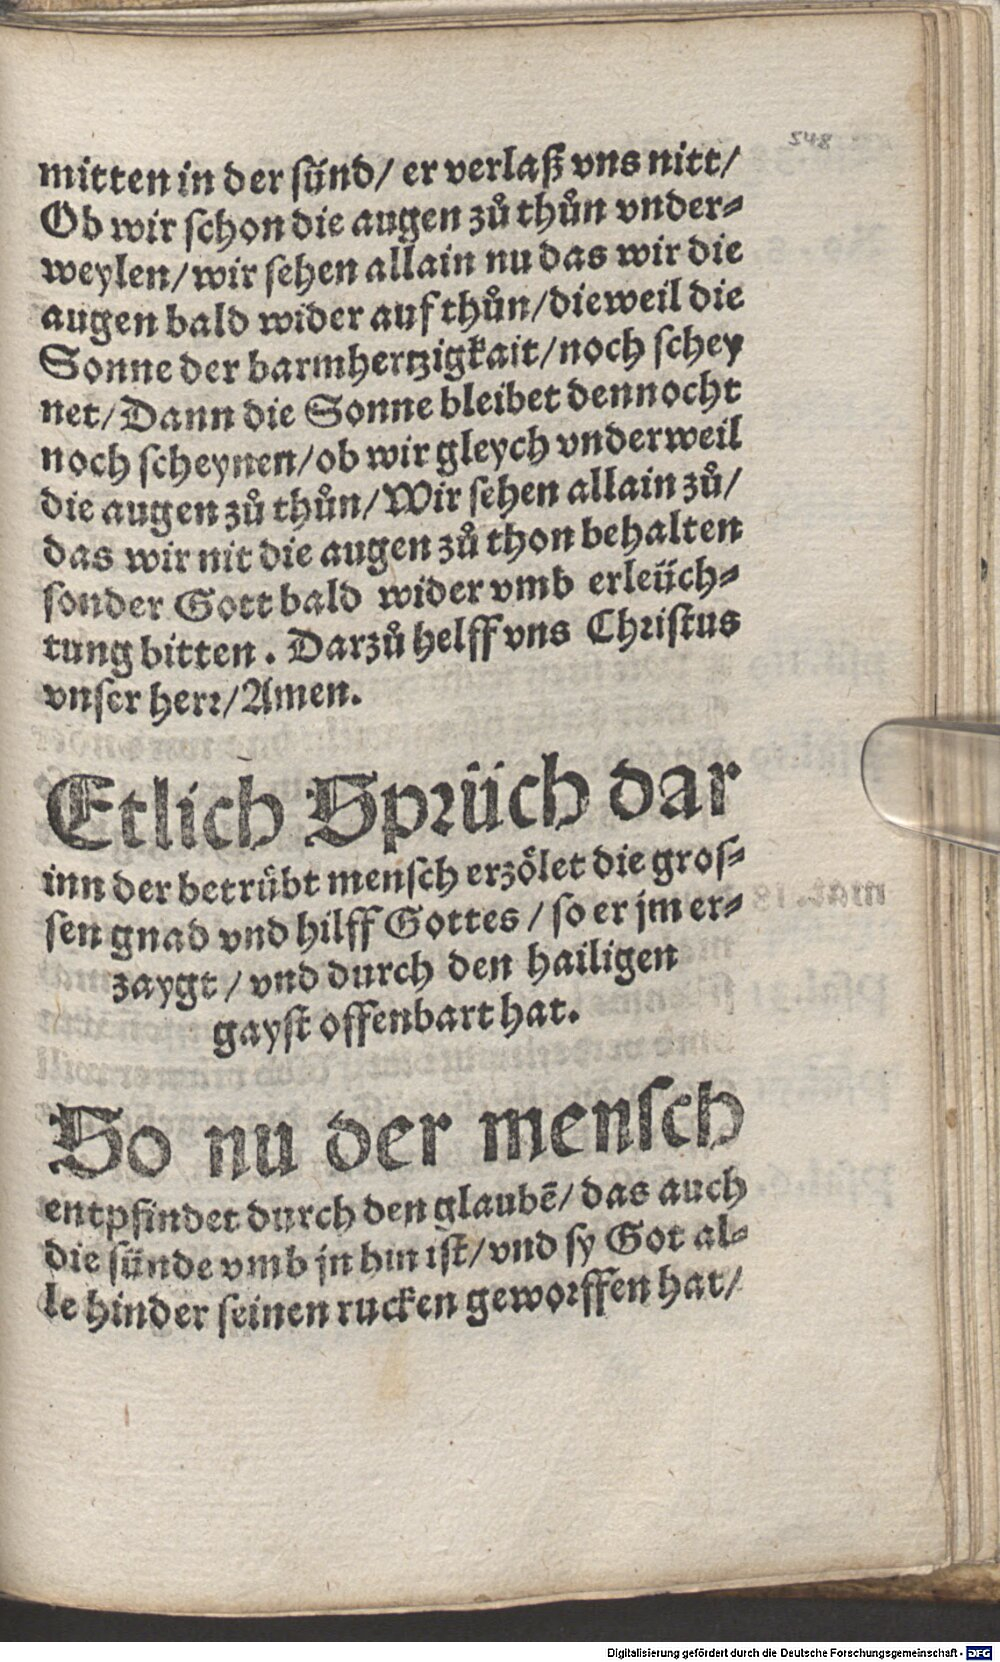 548
mitten in der sünd/ er verlaß vns nitt/
Ob wir schon die augen zů thůn vnder-
weylen/ wir sehen allain nu das wir die
augen bald wider auf thůn/ dieweil die
Sonne der barmhertzigkait/ noch schey
net/ Dann die Sonne bleibet dennocht
noch scheynen/ ob wir gleych vnderweil
die augen zů thůn/ Wir sehen allain zů/
das wir nit die augen zů thon behalten
sonder Gott bald wider vmb erleüch-
tung bitten. Darzů helff vns Christus
vnser herr/ Amen.
Etlich Sprüch dar
inn der betrübt mensch erzölet die gros-
sen gnad vnd hilff Gottes / so er jm er-
zaygt / vnd durch den hailigen
gayst offenbart hat.
So nu der mensch
entpfindet durch den glaubē/ das auch
die sünde vmb jn hin ist/ vnd sy Got al-
le hinder seinen rucken geworffen hat/
Digitalisierung gefördert durch die Deutsche Forschungsgemeinschaft - DFG